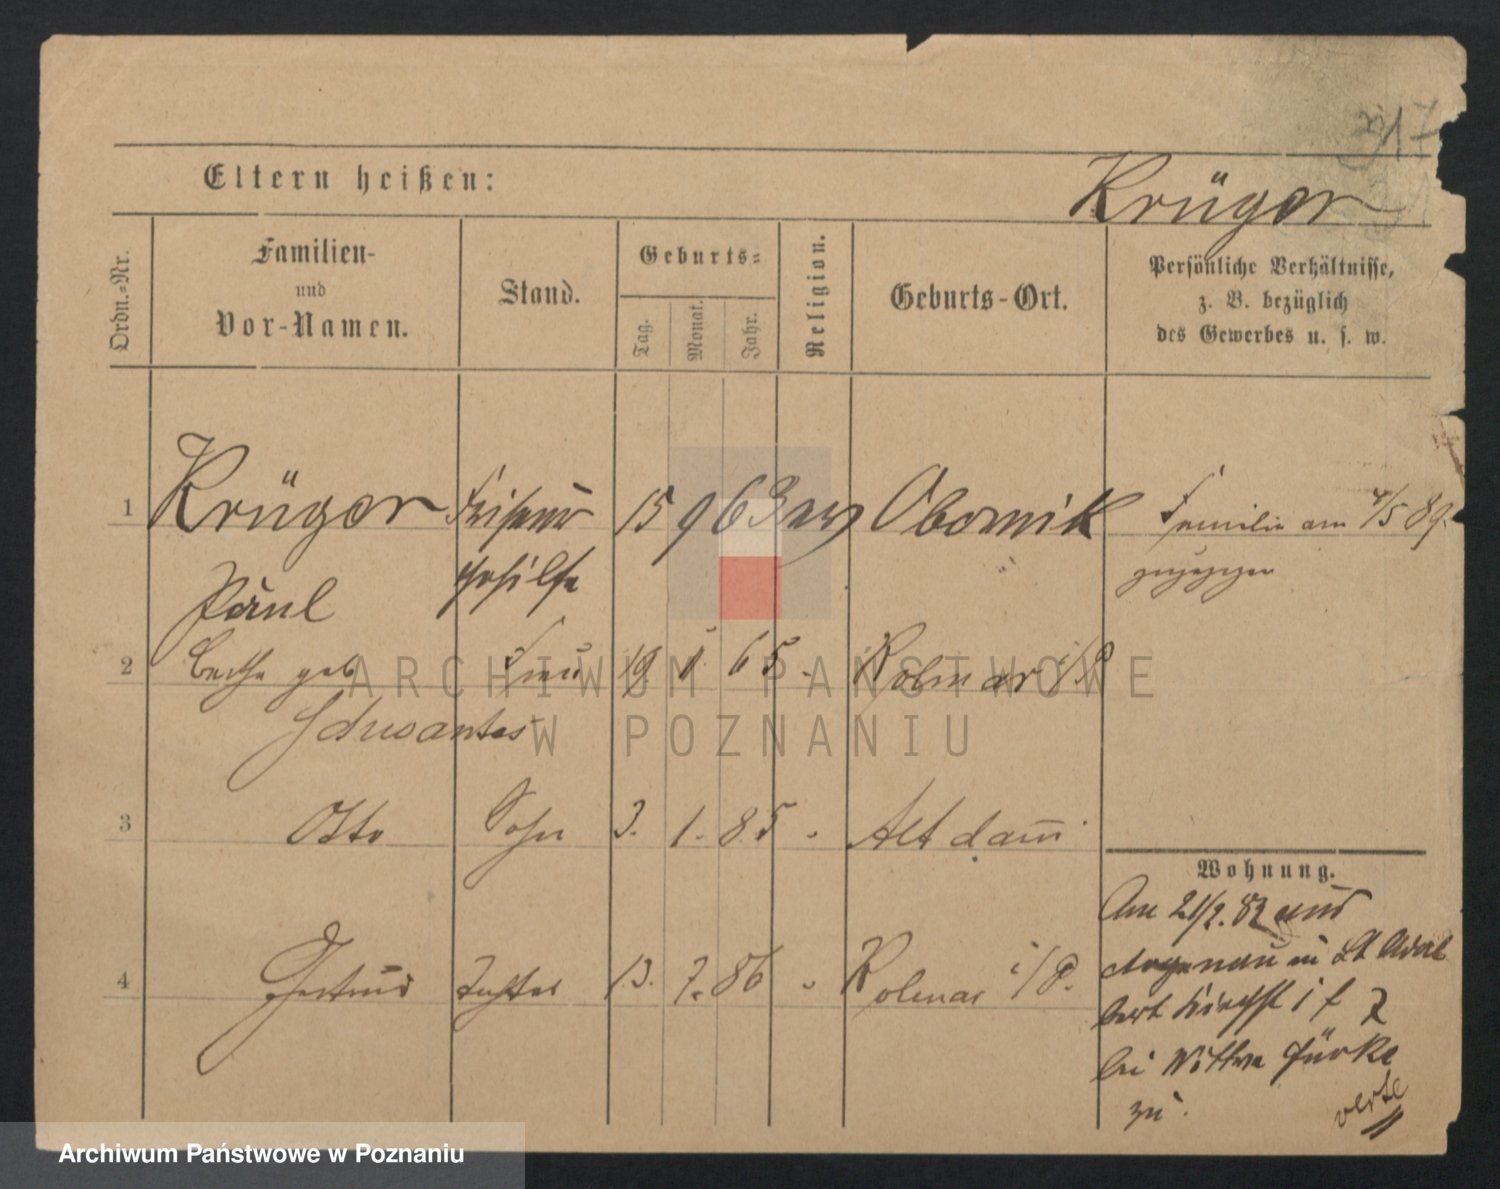 317
Eltern heißen:
Krüger
Ordn.-Nr.
Familien-
und
Vor-Namen.
Stand.
Geburts-
Tag.
Monat.
Jahr.
Religion.
Geburts-Ort.
Persönliche Verhältnisse,
z. B. bezüglich
des Gewerbes u. s. w.
1 Krüger Friseur 15 9 63 ev Obornik Familie am 4/5 89.
gehilfe zugezogen
Paul
2 geb Frau 19 1. 65 Kolmar i/P
Schwantes
3 Otto Sohn 3. 1. 85 Altdam
Wohnung.
Am 21/2. 89 aus
Argenau in St Adal
bert
4 Gertrud Tochter 13. 7. 86 Kolmar i/P.
bei Wittwe
zu.
verte
ARCHIWUM PAŃSTWOWE
W POZNANIU
Archiwum Państwowe w Poznaniu